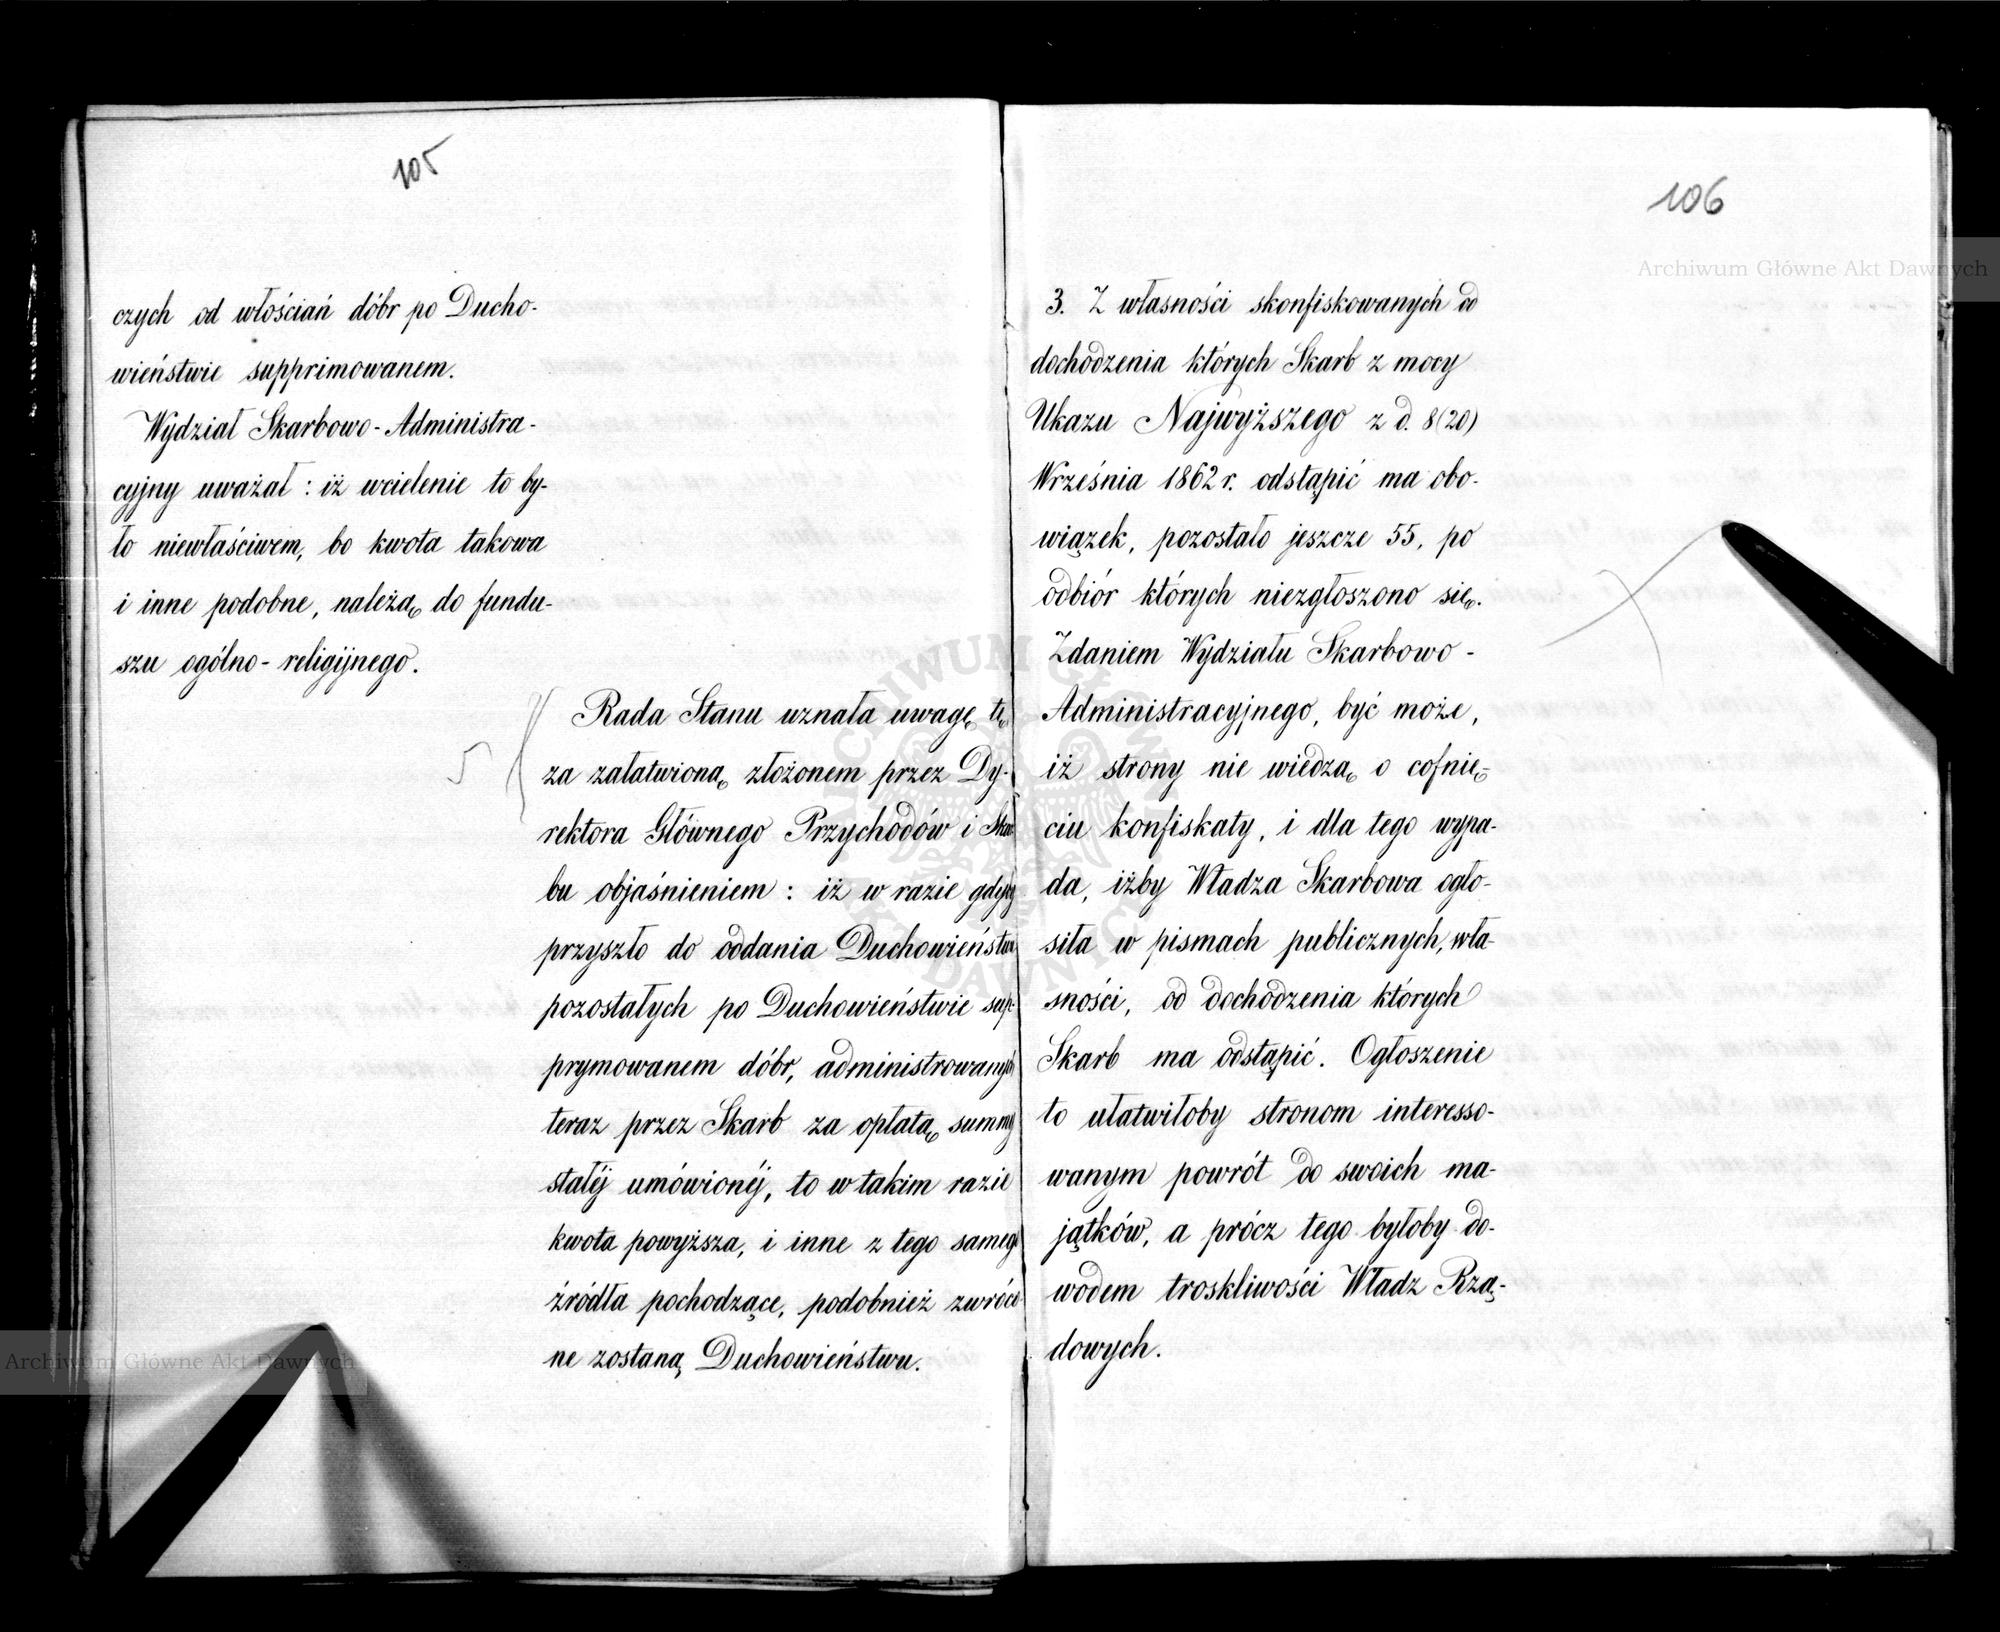 105
czych od włościań dóbr po Ducho-
wieństwie supprimowanem.
Wydział Skarbowo-Administra-
cyjny uważał: iż wcielenie to by-
ło niewłaściwem, bo kwota takowa
i inne podobne, należą do fundu-
szu ogólno-religijnego.
Rada Stanu uznała uwagę tę
za załatwioną złożonem przez Dy-
rektora Głównego Przychodów i Skar
bu objaśnieniem: iż w razie gdyby
przyszło do oddania Duchowieństwu
pozostałych po Duchowieństwie sup-
prymowanem dóbr, administrowanych
teraz przez Skarb za opłatą summy
stałéj umówionéj, to w takim razie
kwota powyższa, i inne z tego samego
źródła pochodzące, podobnież zwróco
ne zostaną Duchowieństwu.
106
3. Z własności skonfiskowanych od
dochodzenia których Skarb z mocy
Ukazu Najwyższego z d. 8(20)
Września 1862 r. odstąpić ma obo-
wiązek, pozostało jeszcze 55, po
odbiór których niezgłoszono się.
Zdaniem Wydziału Skarbowo-
Administracyjnego, być może,
iż strony nie wiedzą o cofnię-
ciu konfiskaty, i dla tego wypa-
da, iżby Władza Skarbowa ogło-
siła w pismach publicznych, wła-
sności, od dochodzenia których
Skarb ma odstąpić. Ogłoszenie
to ułatwiłoby stronom interesso-
wanym powrót do swoich ma-
jątków, a prócz tego byłoby do-
wodem troskliwości Władz Rzą-
dowych.
Archiwum Główne Akt Dawnych
Archiwum Główne Akt Dawnych
ARCHIWUM GŁÓWNE AKT DAWNYCH